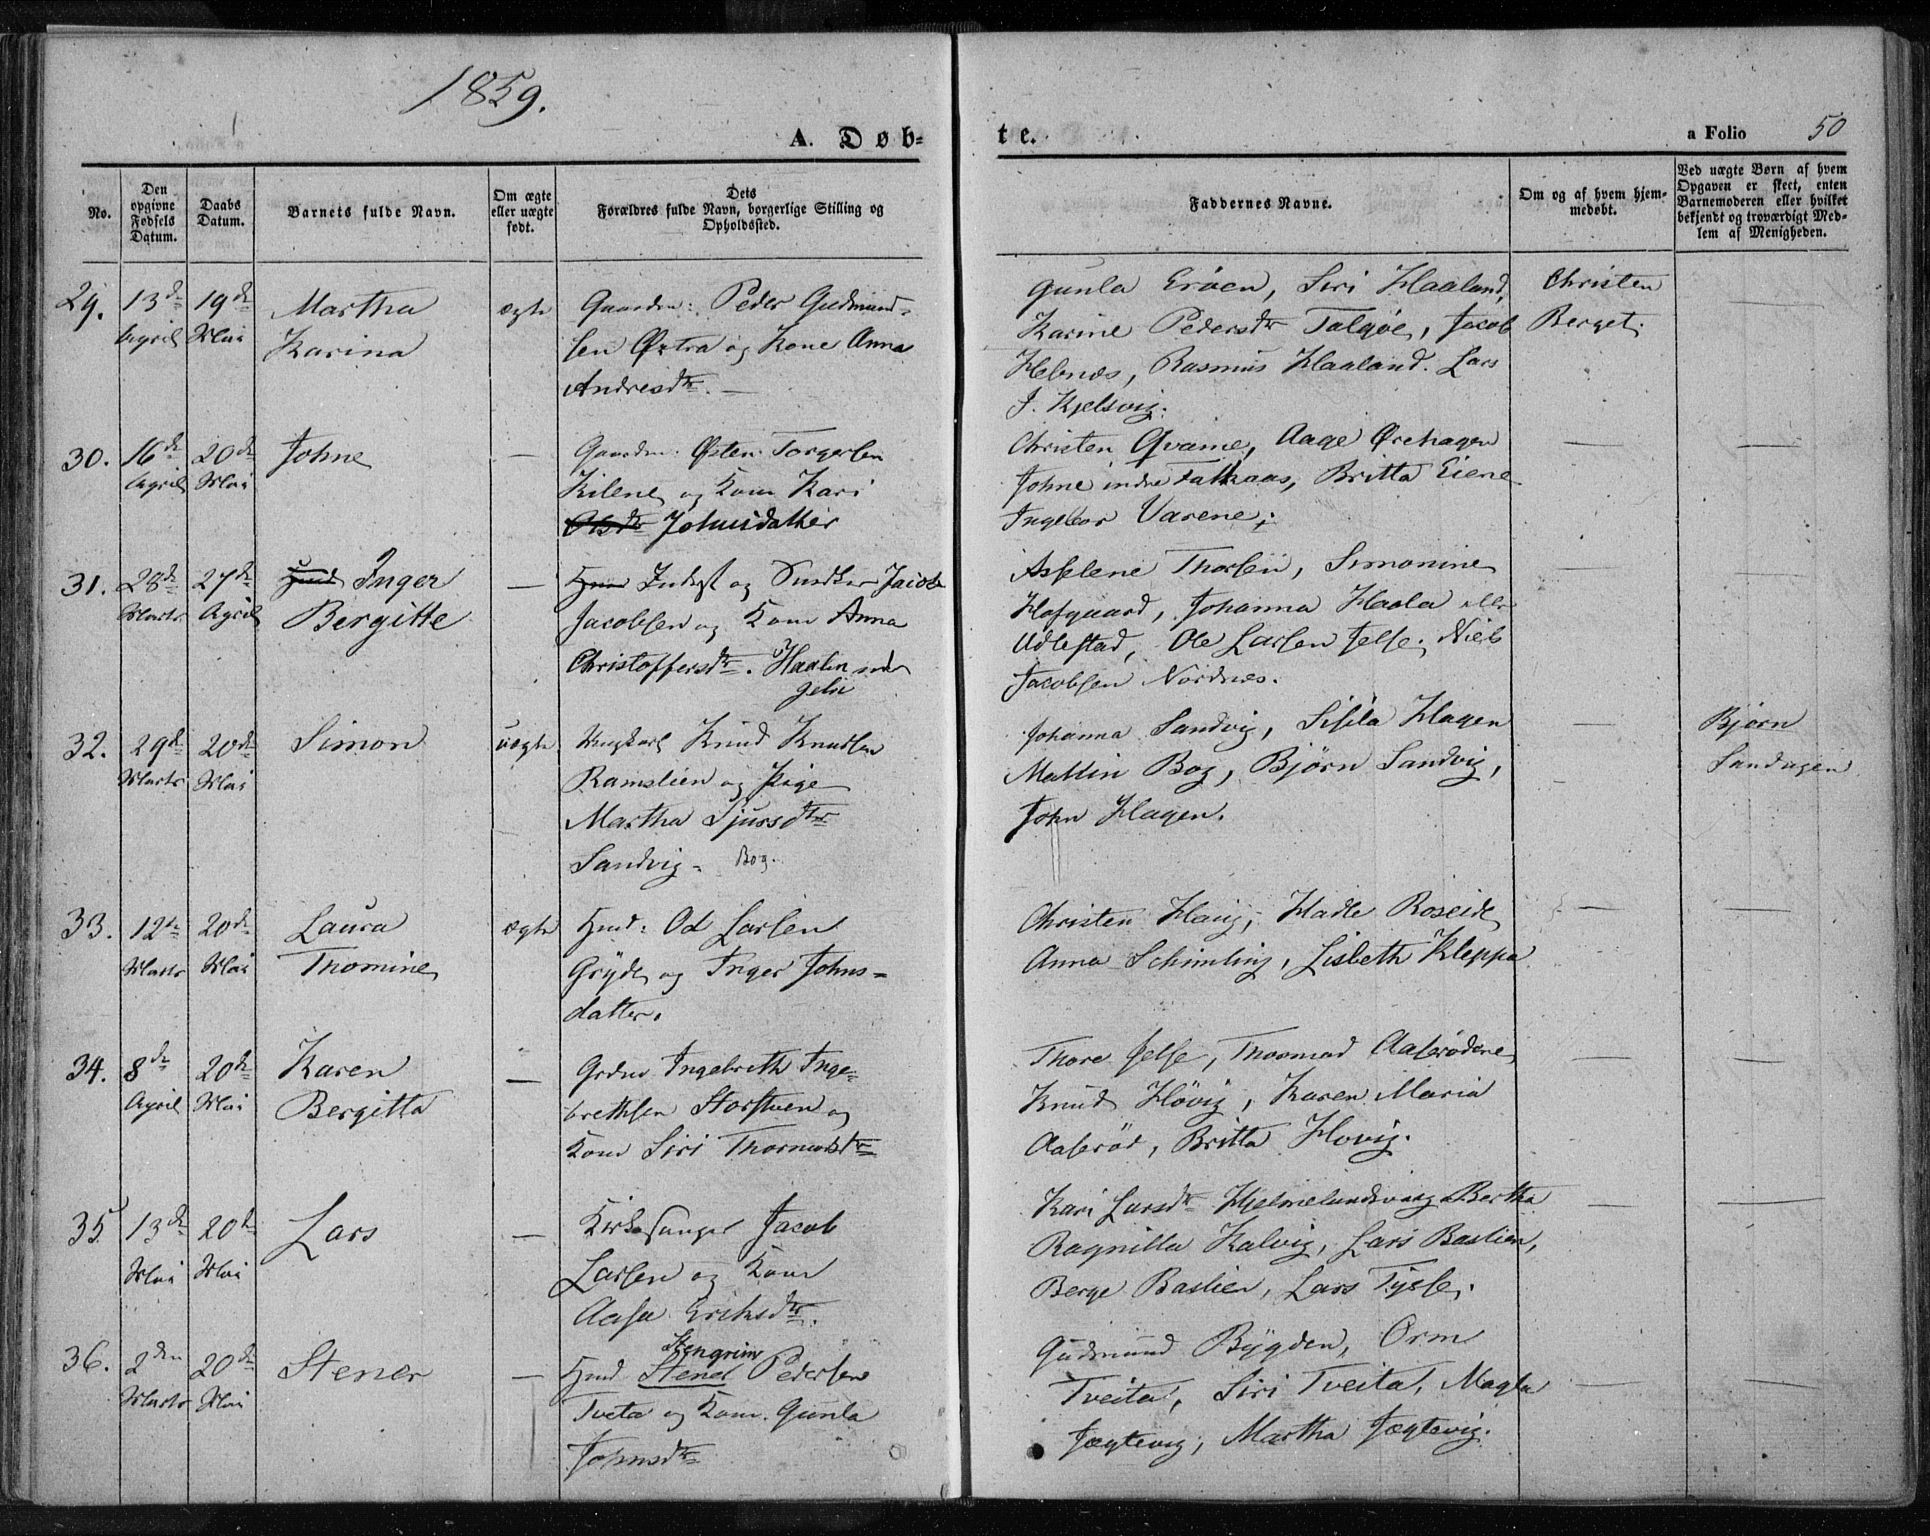 1859.
A. Døb-
te.
a Folio 50
No.
Den opgivne Fødsels Datum.
Daabs Datum.
Barnets fulde Navn.
Om ægte eller uægte født.
Dets Forældres fulde Navn, borgerlige Stilling og Opholdssted.
Faddernes Navne.
Om og af hvem hjem-
medøbt.
Ved uægte Børn af hvem
Opgaven er skeet, enten
Barnemoderen eller hvilket
bekjendt og troværdigt Med-
lem af Menigheden.
29. 13de April 19de Mai
Martha
Karina
ægte
Gaardm: Peder Gudmund-
sen Østra og Kone Anna
Andresdtr. —
Gunla Erøen, Siri Haaland,
Karine Pedersdtr Talgøe, Jacob
Helnæs, Rasmus Haaland. Lars
J. Kjelsvig.
Christen
Berget.
30. 16de April 20de Mai
Johne
—
Gaardm: Østen Torgersen
Kilene og Kone Kari
Olsdtr Johnsdatter
Christen Qvame, Aage Ørehagen
Johne indre Falkaas, Britta Eiene
Ingebor Varene;
31. 28de Marts 27de April
Inger
Bergitte
—
Huusm Inderst og Snedker Jacob
Jacobsen og Kone Anna
Christoffersdtr. Haalen
Asselene Thorsen, Simonine
Hofgaard, Johanna Haala eller
Udlestad, Ole Larsen Jelse, Niels
Jacobsen Nordnæs.
32. 29de Marts 20de Mai
Simon
uægte
Ungkarl Knud Knudsen
Ramslien og Pige
Martha Sjursdtr
Sandvig - Bog.
Johanna Sandvig, Sisila Hagen
Mallin Bog, Bjørn Sandvig,
John Hagen.
Bjørn
Sandvigen
33. 12te Marts 20de Mai
Laura
Thomine
ægte
Huusd: Od Larsen
Gryde og Inger Johns-
datter.
Christen Havig, Hadle Roseide
Anna Schimling, Lisbeth Kleppa
34. 8de April 20de Mai
Karen
Bergitta
—
Grdm Ingebreth Inge-
brethsen Storstuen og
Kone Siri Thormodsdtr
Thore Jelse, Thormod Aaserødene
Knud Høvig, Karen Maria
Aaserød, Britta Hovig.
35 13de Mai 20de Mai
Lars
—
Kirkesanger Jacob
Larsen og Kone
Aasa Eriksdtr.
Kari Larsdtr Hjelmelandsvaag Bertha
Ragnilla Kalvig, Lars Bastlien,
Berge Bastlien, Lars Tysse.
36. 2den Marts 20de Mai
Stener
—
Stengrim
Huusd Stenel Pedersen
Tveta og Kone Gunla
Johnsdtr
Gudmund Bygden, Orm
Tveita, Siri Tveita, Magla
Jægtevig, Martha Jægtevig.